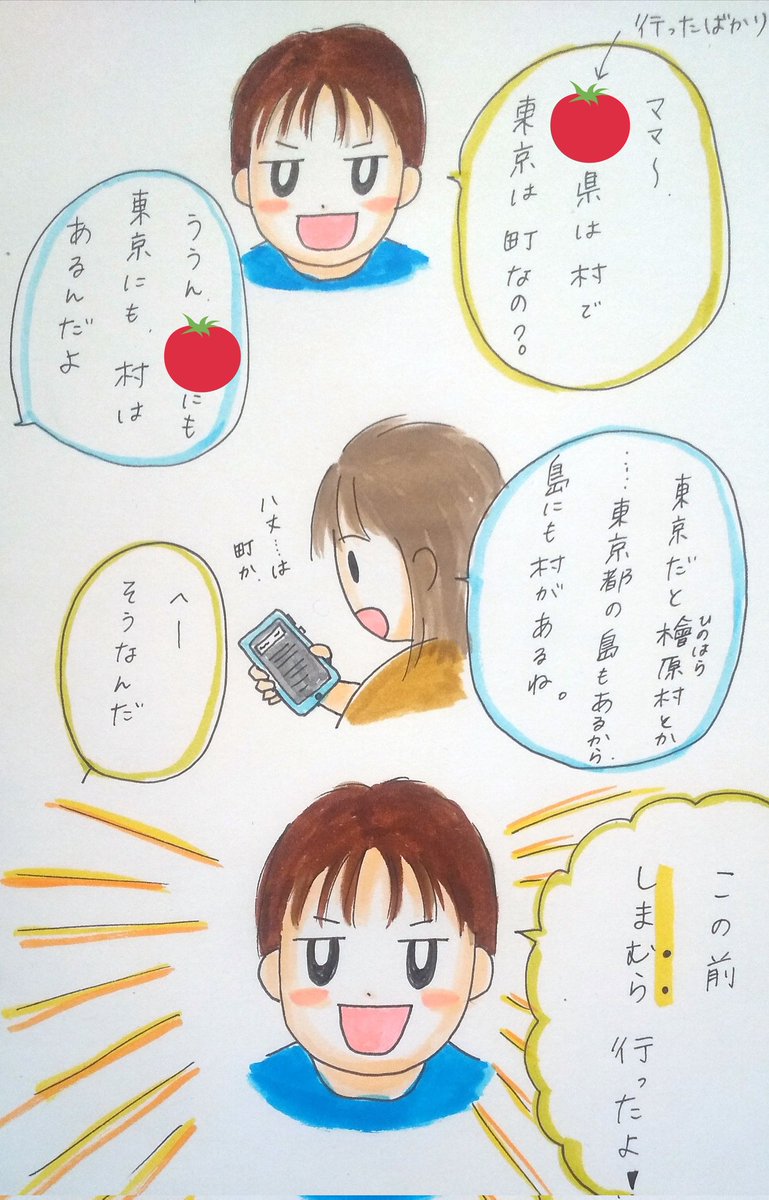 行ったばかり
ママ〜
県は村で
東京は町なの?。
ううん、
にも
東京にも、村は
あるんだよ
東京だと檜原村とか
ひのはら
……東京都の島もあるから、
島にも村があるね。
八丈…は
町か、
へー
そうなんだ
この前
しまむら
行ったよ